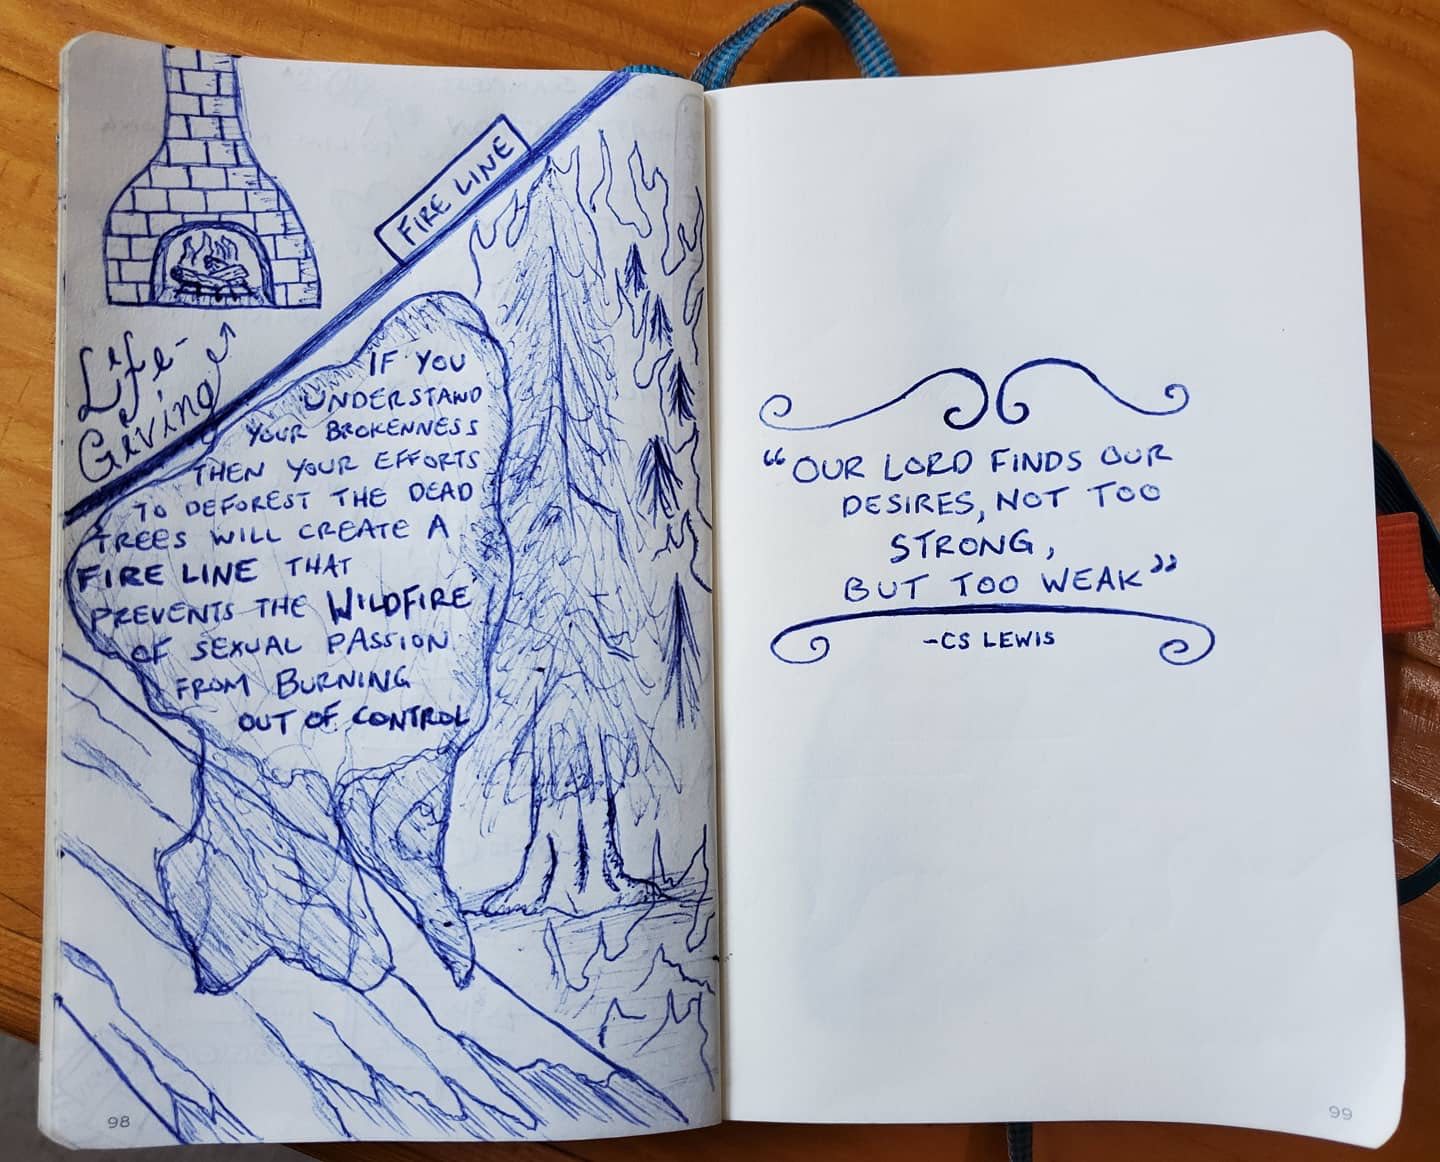 FIRE LINE
Life-
Giving
IF YOU
UNDERSTAND
YOUR BROKENNESS
THEN YOUR EFFORTS
TO DEFOREST THE DEAD
TREES WILL CREATE A
FIRE LINE THAT
PREVENTS THE WILDFIRE
OF SEXUAL PASSION
FROM BURNING
OUT OF CONTROL
98
“OUR LORD FINDS OUR
DESIRES, NOT TOO
STRONG,
BUT TOO WEAK”
-CS LEWIS
99